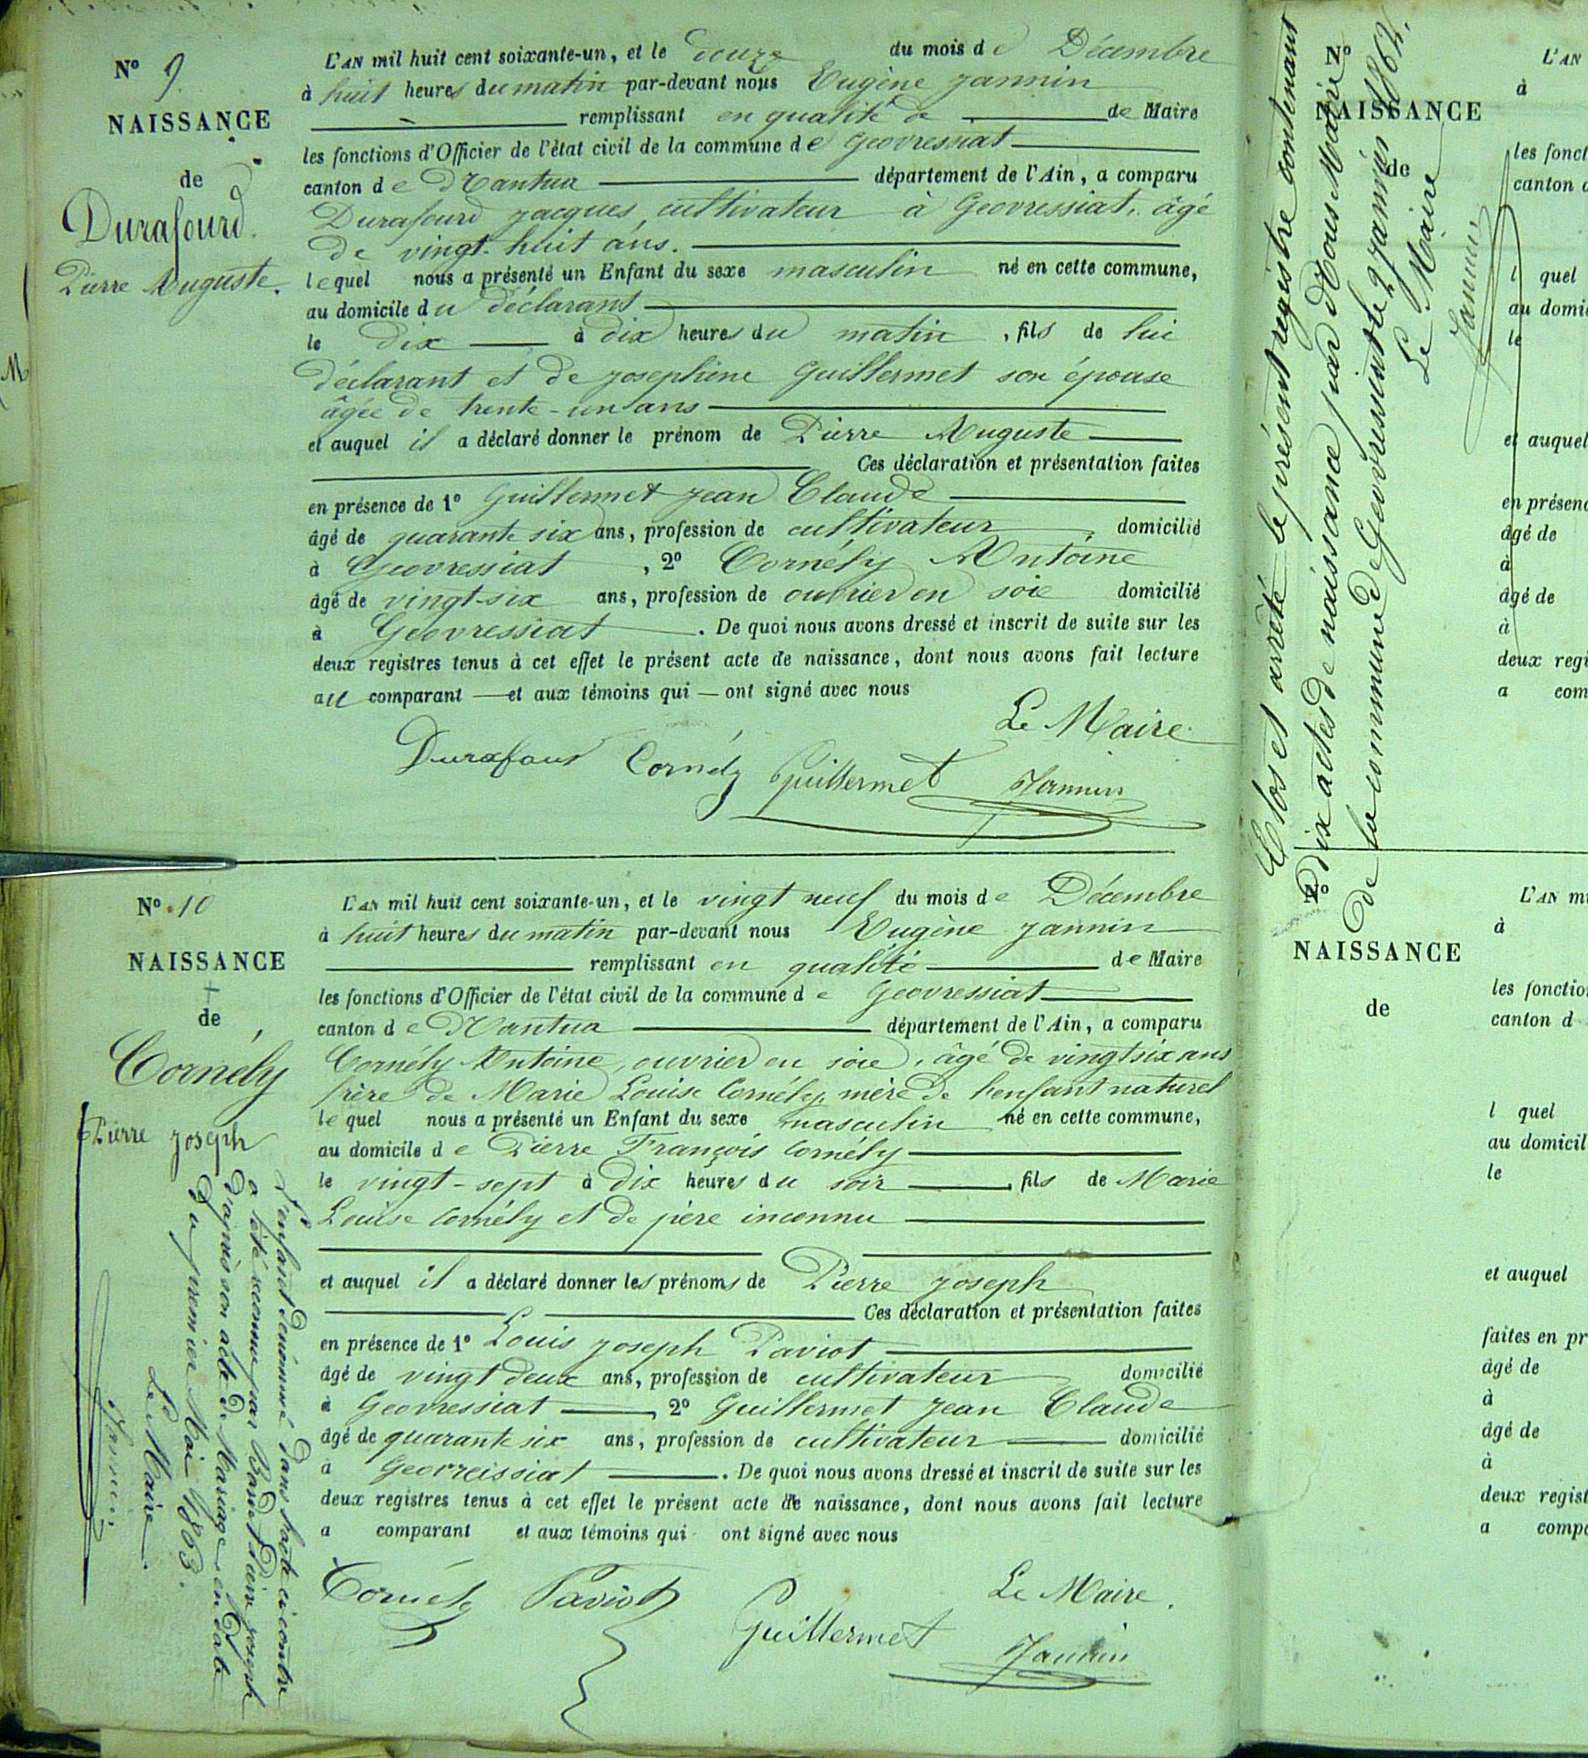 N° 9
NAISSANCE
de
Durafourd
Pierre Auguste.
L'AN mil huit cent soixante-un, et le douze du mois de Décembre
à huit heures du matin par-devant nous Eugène Jannin
remplissant en qualité de de Maire
les fonctions d'Officier de l'état civil de la commune de Geovressiat
canton de Nantua département de l'Ain, a comparu
Durafourd Jacques, cultivateur à Geovressiat, âgé
de vingt-huit ans.
lequel nous a présenté un Enfant du sexe masculin né en cette commune,
au domicile du déclarant
le dix à dix heures du matin, fils de lui
déclarant et de Josephine Guillermet son épouse
âgée de trente-un ans
et auquel il a déclaré donner le prénom de Pierre Auguste
Ces déclaration et présentation faites
en présence de 1° Guillermet Jean Claude
âgé de quarante six ans, profession de cultivateur domicilié
à Geovressiat, 2° Cornély Antoine
âgé de vingt-six ans, profession de ouvrier en soie domicilié
à Geovressiat. De quoi nous avons dressé et inscrit de suite sur les
deux registres tenus à cet effet le présent acte de naissance, dont nous avons fait lecture
au comparant et aux témoins qui ont signé avec nous
Le Maire.
Durafour Cornély Guillermet Jannin
N° 10
NAISSANCE
de
Cornély
Pierre Joseph
L'enfant dénommé dans l'acte ci contre
a été reconnu par Joseph
d'après son acte de Mariage en date
du premier Mai 1863.
Le Maire.
Jannin
L'AN mil huit cent soixante-un, et le vingt neuf du mois de Décembre
à huit heures du matin par-devant nous Eugène Jannin
remplissant en qualité de Maire
les fonctions d'Officier de l'état civil de la commune de Geovressiat
canton de Nantua département de l'Ain, a comparu
Cornély Antoine, ouvrier en soie, âgé de vingt six ans
frère de Marie Louise Cornély, mère de l'enfant naturel
lequel nous a présenté un Enfant du sexe masculin né en cette commune,
au domicile de Pierre François Cornély
le vingt-sept à dix heures du soir, fils de Marie
Louise Cornély et de père inconnu
et auquel il a déclaré donner les prénoms de Pierre Joseph
Ces déclaration et présentation faites
en présence de 1° Louis Joseph Paviot
âgé de vingt deux ans, profession de cultivateur domicilié
à Geovressiat, 2° Guillermet Jean Claude
âgé de quarante six ans, profession de cultivateur domicilié
à Geovreissiat. De quoi nous avons dressé et inscrit de suite sur les
deux registres tenus à cet effet le présent acte de naissance, dont nous avons fait lecture
a comparant et aux témoins qui ont signé avec nous
Le Maire.
Cornély Paviot Guillermet Jannin
Clos et arrêté le présent registre contenant
dix actes de naissance par Nous Maire
de la commune de Geovressiat le 2 Janvier 1862.
Le Maire
Jannin
N°
NAISSANCE
de
L'AN
à
les fonct
canton d
l quel
au domi
le
et auquel
en présenc
âgé de
à
âgé de
à
deux regi
a com
N°
NAISSANCE
de
L'AN mi
à
les fonctio
canton d
l quel
au domicil
le
et auquel
faites en pr
âgé de
à
âgé de
à
deux regist
a compa